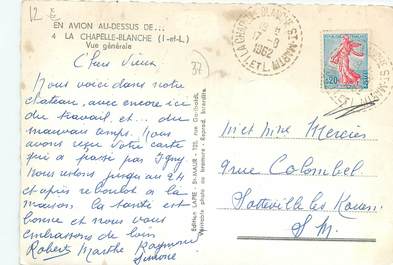 12
EN AVION AU-DESSUS DE...
4 LA CHAPELLE-BLANCHE (I-et-L)
Vue générale
37
Chers Vieux
Nous voici dans notre
château, avec encore ici
du travail et... du
mauvais temps. Nous
avons reçu votre carte
qui a passé par Igny
Nous restons jusqu'au 24
et après reboulot à la
maison la santé est
bonne et nous vous
embrassons de loin
Robert Marthe Raymond
Simone
Edition LAPIE - St-MAUR - 125, rue Garibaldi.
Véritable photo au bromure - Reprod. interdite.
LA CHAPELLE-BLANCHE-ST-MARTIN
17 -8
1962
I. ET L.
0,20
Mr et Mme Mercier
9 rue Colombel
Sotteville les Rouen
S.M.